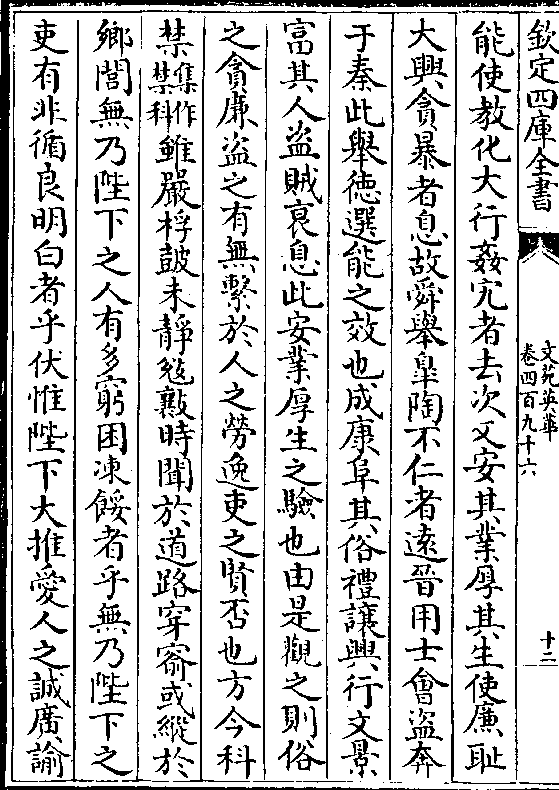 欽定四庫全書
文苑英華
卷四百九十六
十二
能使教化大行姦宄者去次又安其業厚其生使廉恥
大興貪暴者息故舜舉臯陶不仁者逺晉用士㑹盜奔
于秦此舉徳選能之效也成康阜其俗禮讓興行文景
富其人盜賊衰息此安業厚生之驗也由是觀之則俗
之貪廉盜之有無繫於人之勞逸吏之賢否也方今科
禁集作禁科雖嚴桴鼓未靜敓敚時聞於道路穿窬或縱於
鄉閭無乃陛下之人有多窮困凍餒者乎無乃陛下之
吏有非循良明白者乎伏惟陛下大推愛人之誠廣諭